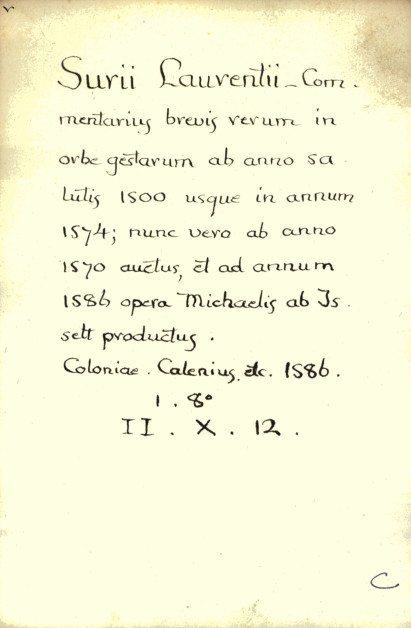 Surii Laurentii - Com.
mentarius brevis rerum in
orbe gestarum ab anno sa
lutis 1500 usque in annum
1574; nunc vero ab anno
1570 auctus, et ad annum
1586 opera Michaelis ab Is.
selt productus.
Coloniae. Calenius, etc. 1586.
1. 8°
II. X. 12.
C